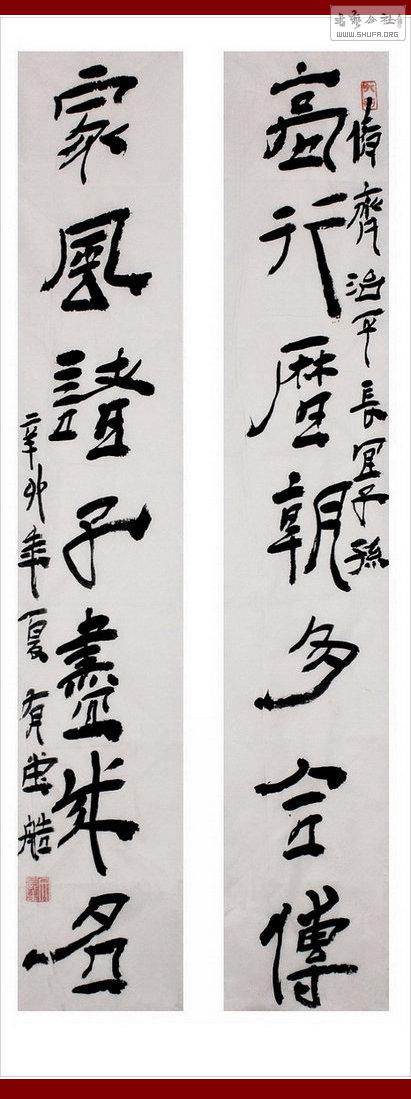 書法公社
WWW.SHUFA.ORG
修齊治平長宜子孫
高行曆朝多合傳
家風諸子盡成名
辛卯年夏有堂